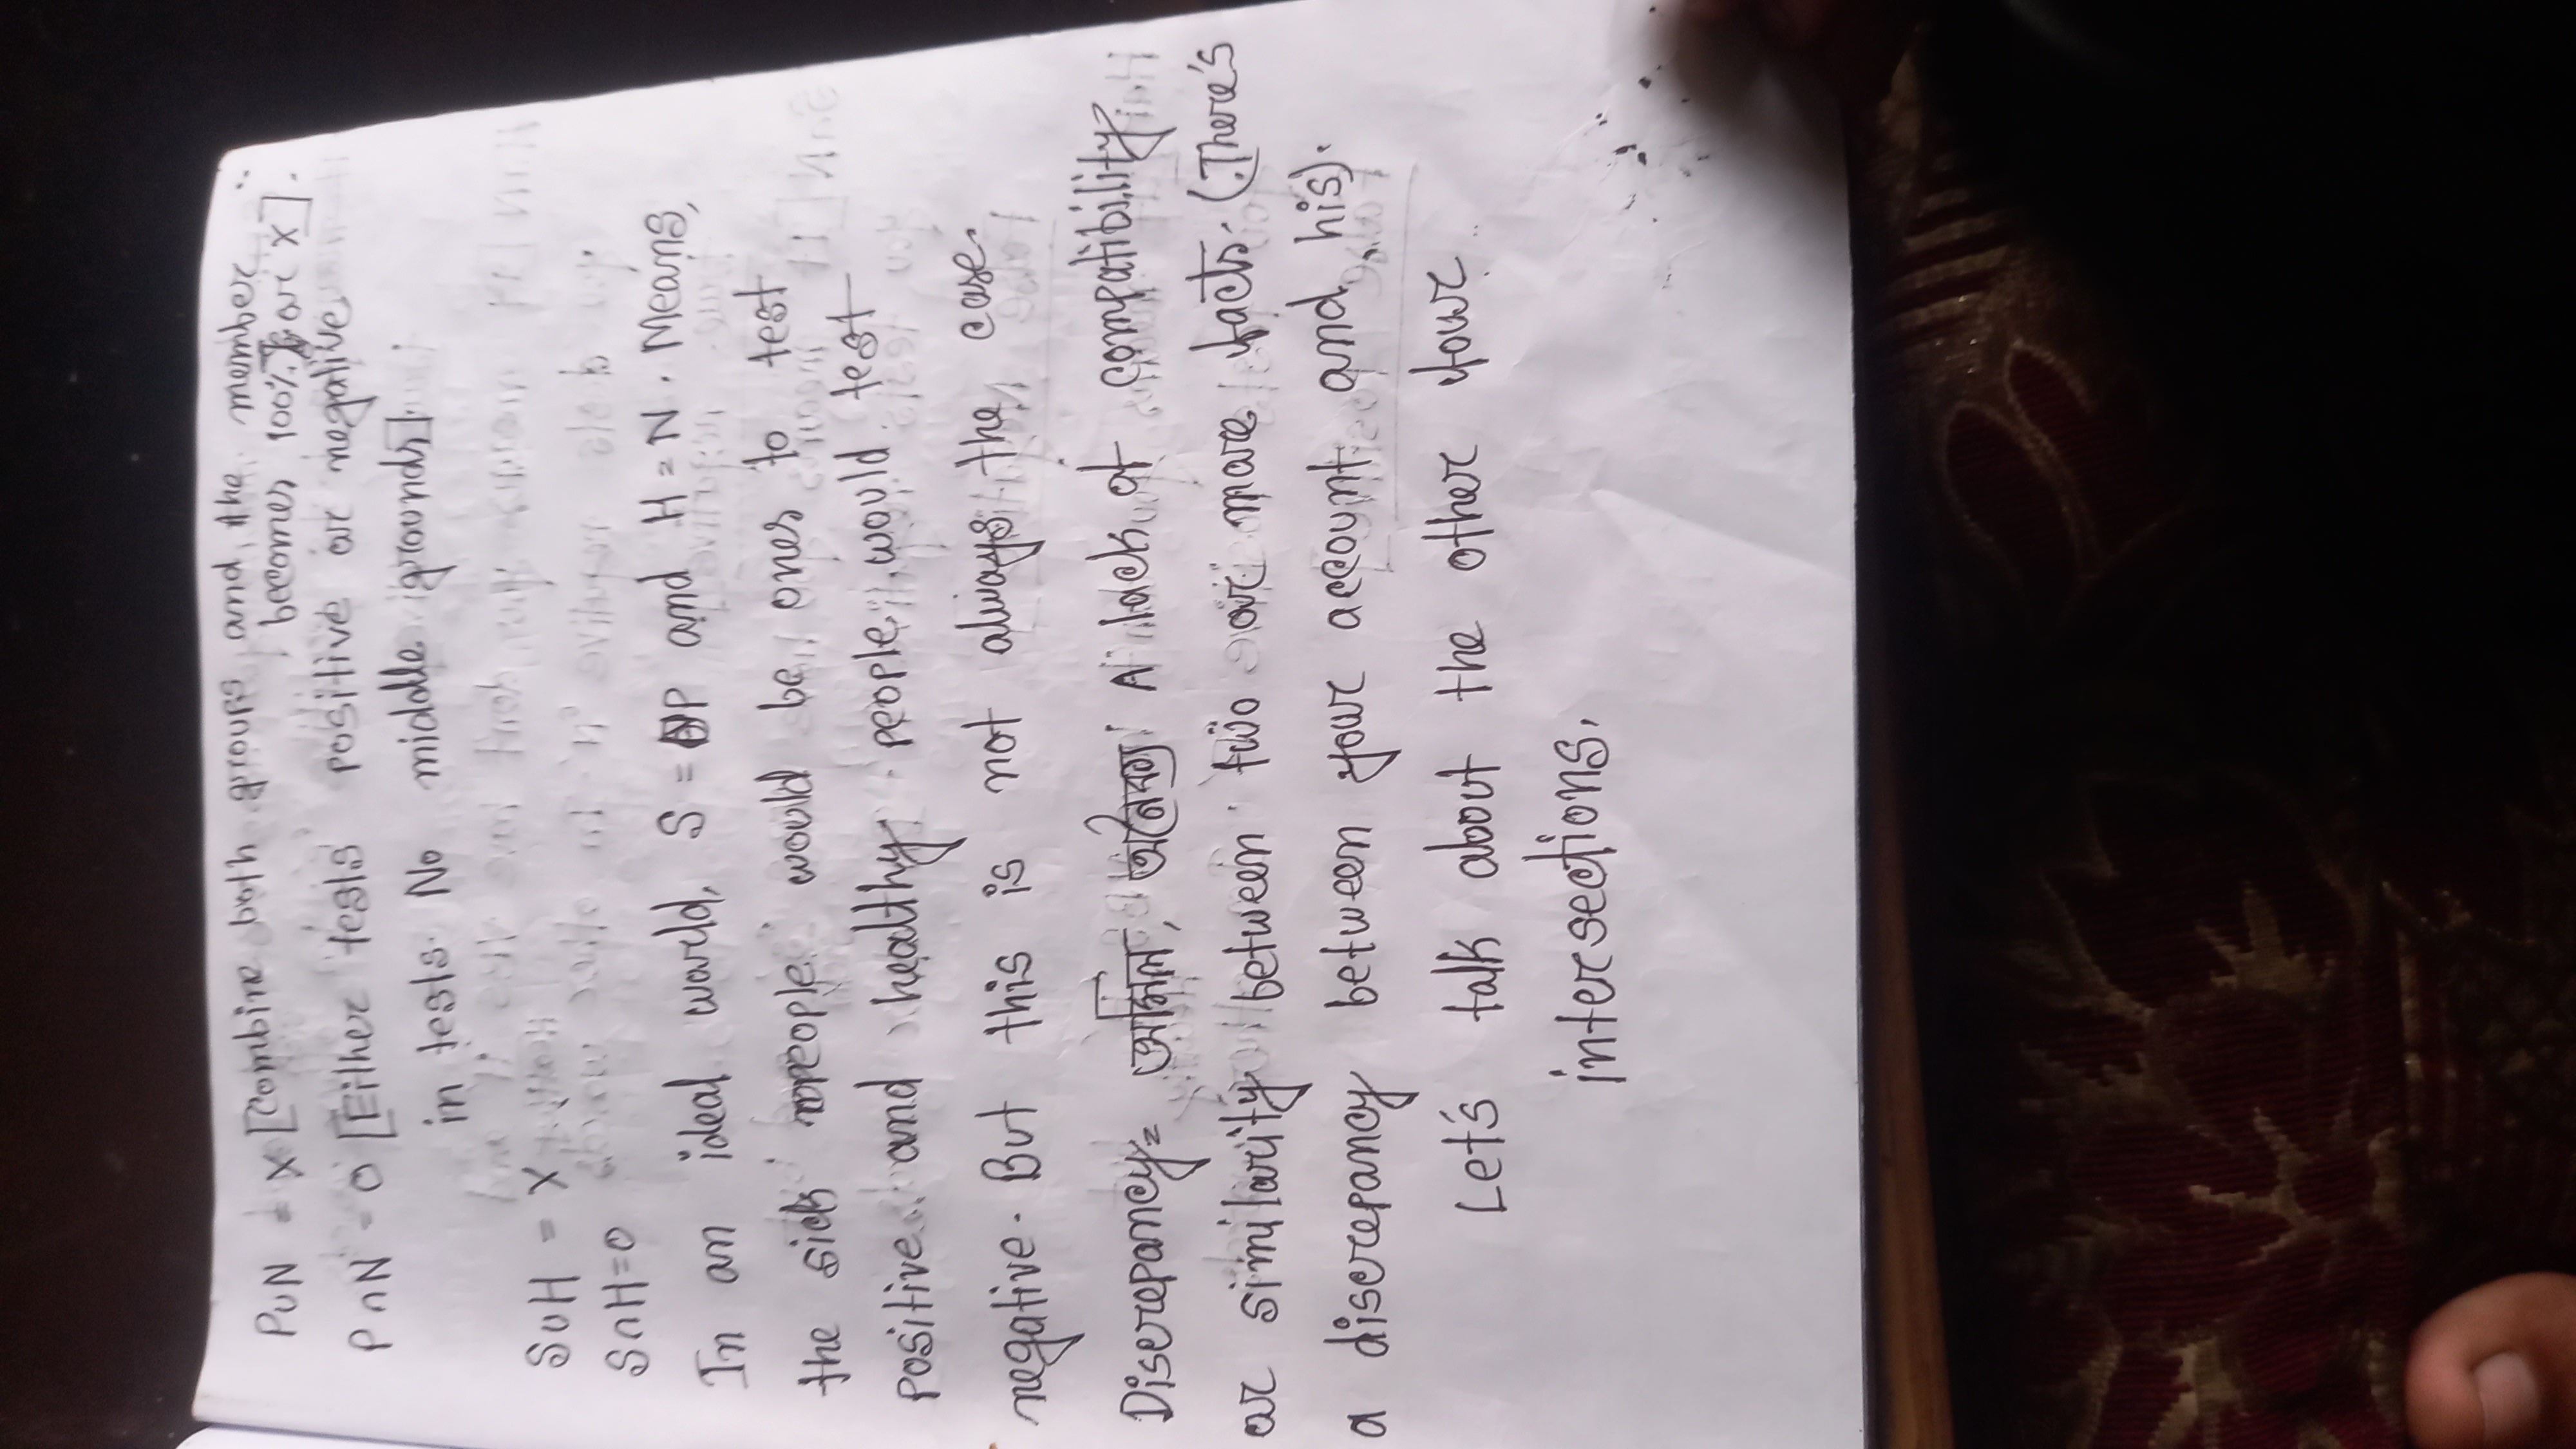 P∪N = X [Combine both groups and the member
becomes 100% or X].
P∩N = 0 [Either tests positive or negative
in tests. No middle grounds].
S∪H = X
S∩H=0
In an ideal world, S = P and H = N. Means,
the sick people would be ones to test
positive and healthy people would test
negative. But this is not always the case.
Discrepancy= অমিল, অনৈক্য A lack of compatibility
or similarity between two or more facts. (There's
a discrepancy between your account and his).
Let's talk about the other four
intersections.